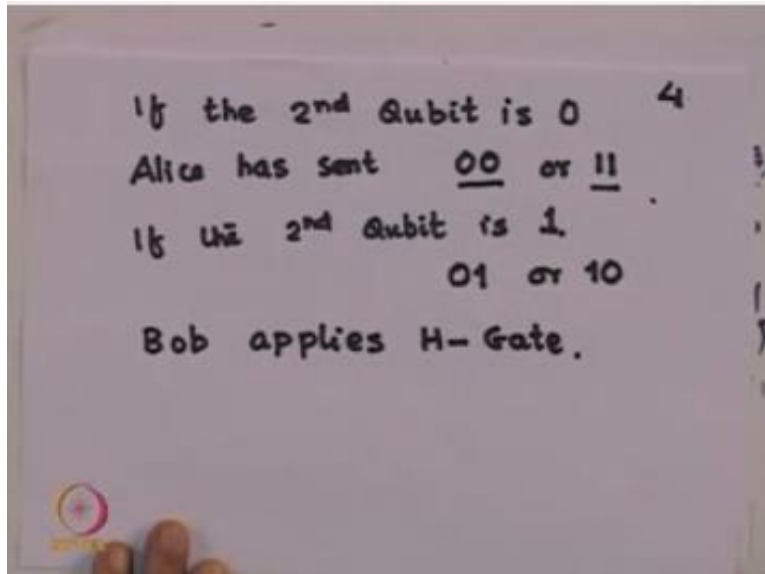 If the 2nd Qubit is 0 4
Alice has sent 00 or 11.
If the 2nd Qubit is 1
01 or 10
Bob applies H-Gate.